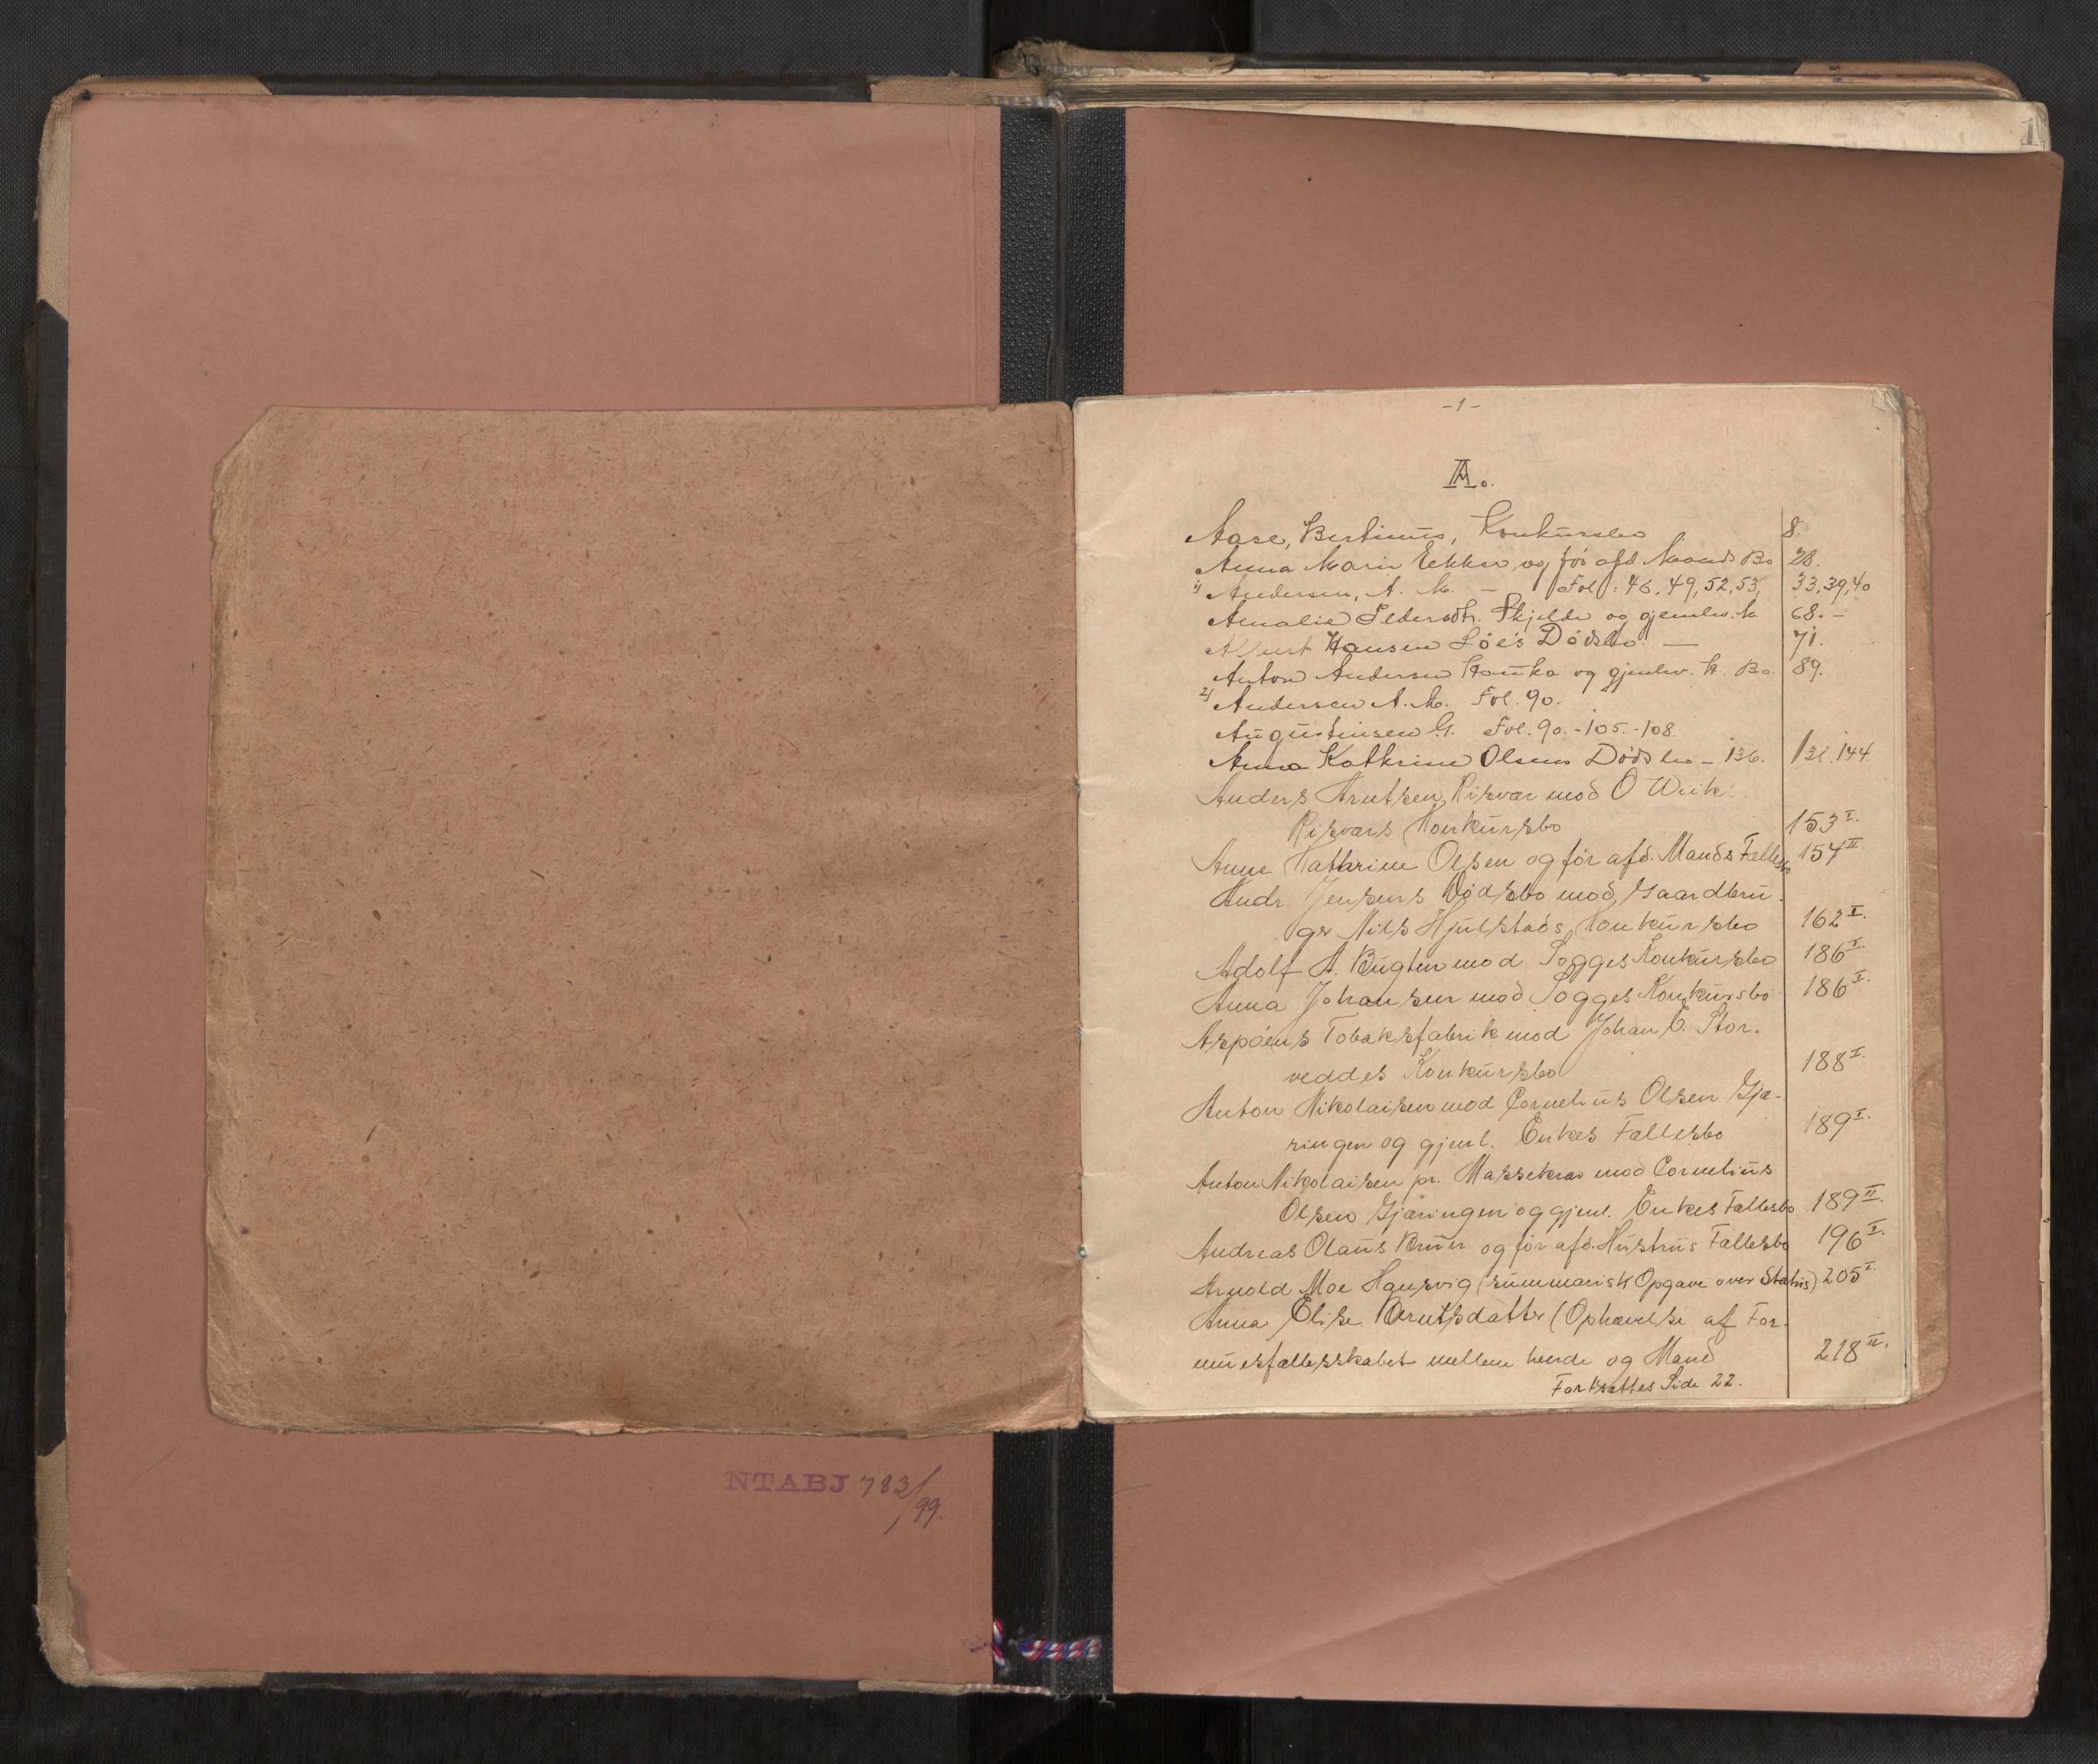 -1-
A.
Aase, Bertinus, Konkursbo 8.
Anna Marie Ekker og før afd Mands Bo 28.
1) Andersen, A. M. — Fol: 46, 49, 52, 53, 33, 39, 40
Amalie Pedersdtr. Skjelde og gjenlev. M. 68.-
Albert Hansen Løes Dødsbo. — 71.
Anton Andersen og gjenlev. H. Bo. 89.
2) Andersen A. M. Fol. 90.
Augustinsen G. Fol. 90.-105.-108.
Anna Kathrine Olsens Dødsbo - 136. 131. 144
Anders Arntsen, Risvær mod O Wiik
Risværs Konkursbo 153 I.
Anne Kathrine Olsen og før afd. Mands Fællesbo 154 II.
Andr. Jensens Dødsbo mod Gaardbru-
ger Nils Hjulstads Konkursbo 162 I.
Adolf A. Bugten mod Sogges Konkursbo 186 I.
Anna Johansen mod Sogges Konkursbo 186 I.
Aspøens Tobaksfabrik mod Johan E. Stor-
veddes Konkursbo 188 I.
Anton Nikolaisen mod Cornelius Olsen Gjæ-
ringen og gjenl. Enkes Fællesbo 189 I.
Anton Nikolaisen pr. Massekrav mod Cornelius
Olsen Gjæringen og gjenl. Enkes Fællesbo 189 II.
Andreas Olaus Bruun og før afd. Hustrus Fællesbo 196 I.
Arnold Moe Hansvig (summarisk Opgave over Status) 205 I.
Anna Elise Berntsdatter (Ophævelse af For-
muesfællesskabet mellem hende og Mand 218 II.
Fortsættes Side 22.
NTABJ 783/99.
1